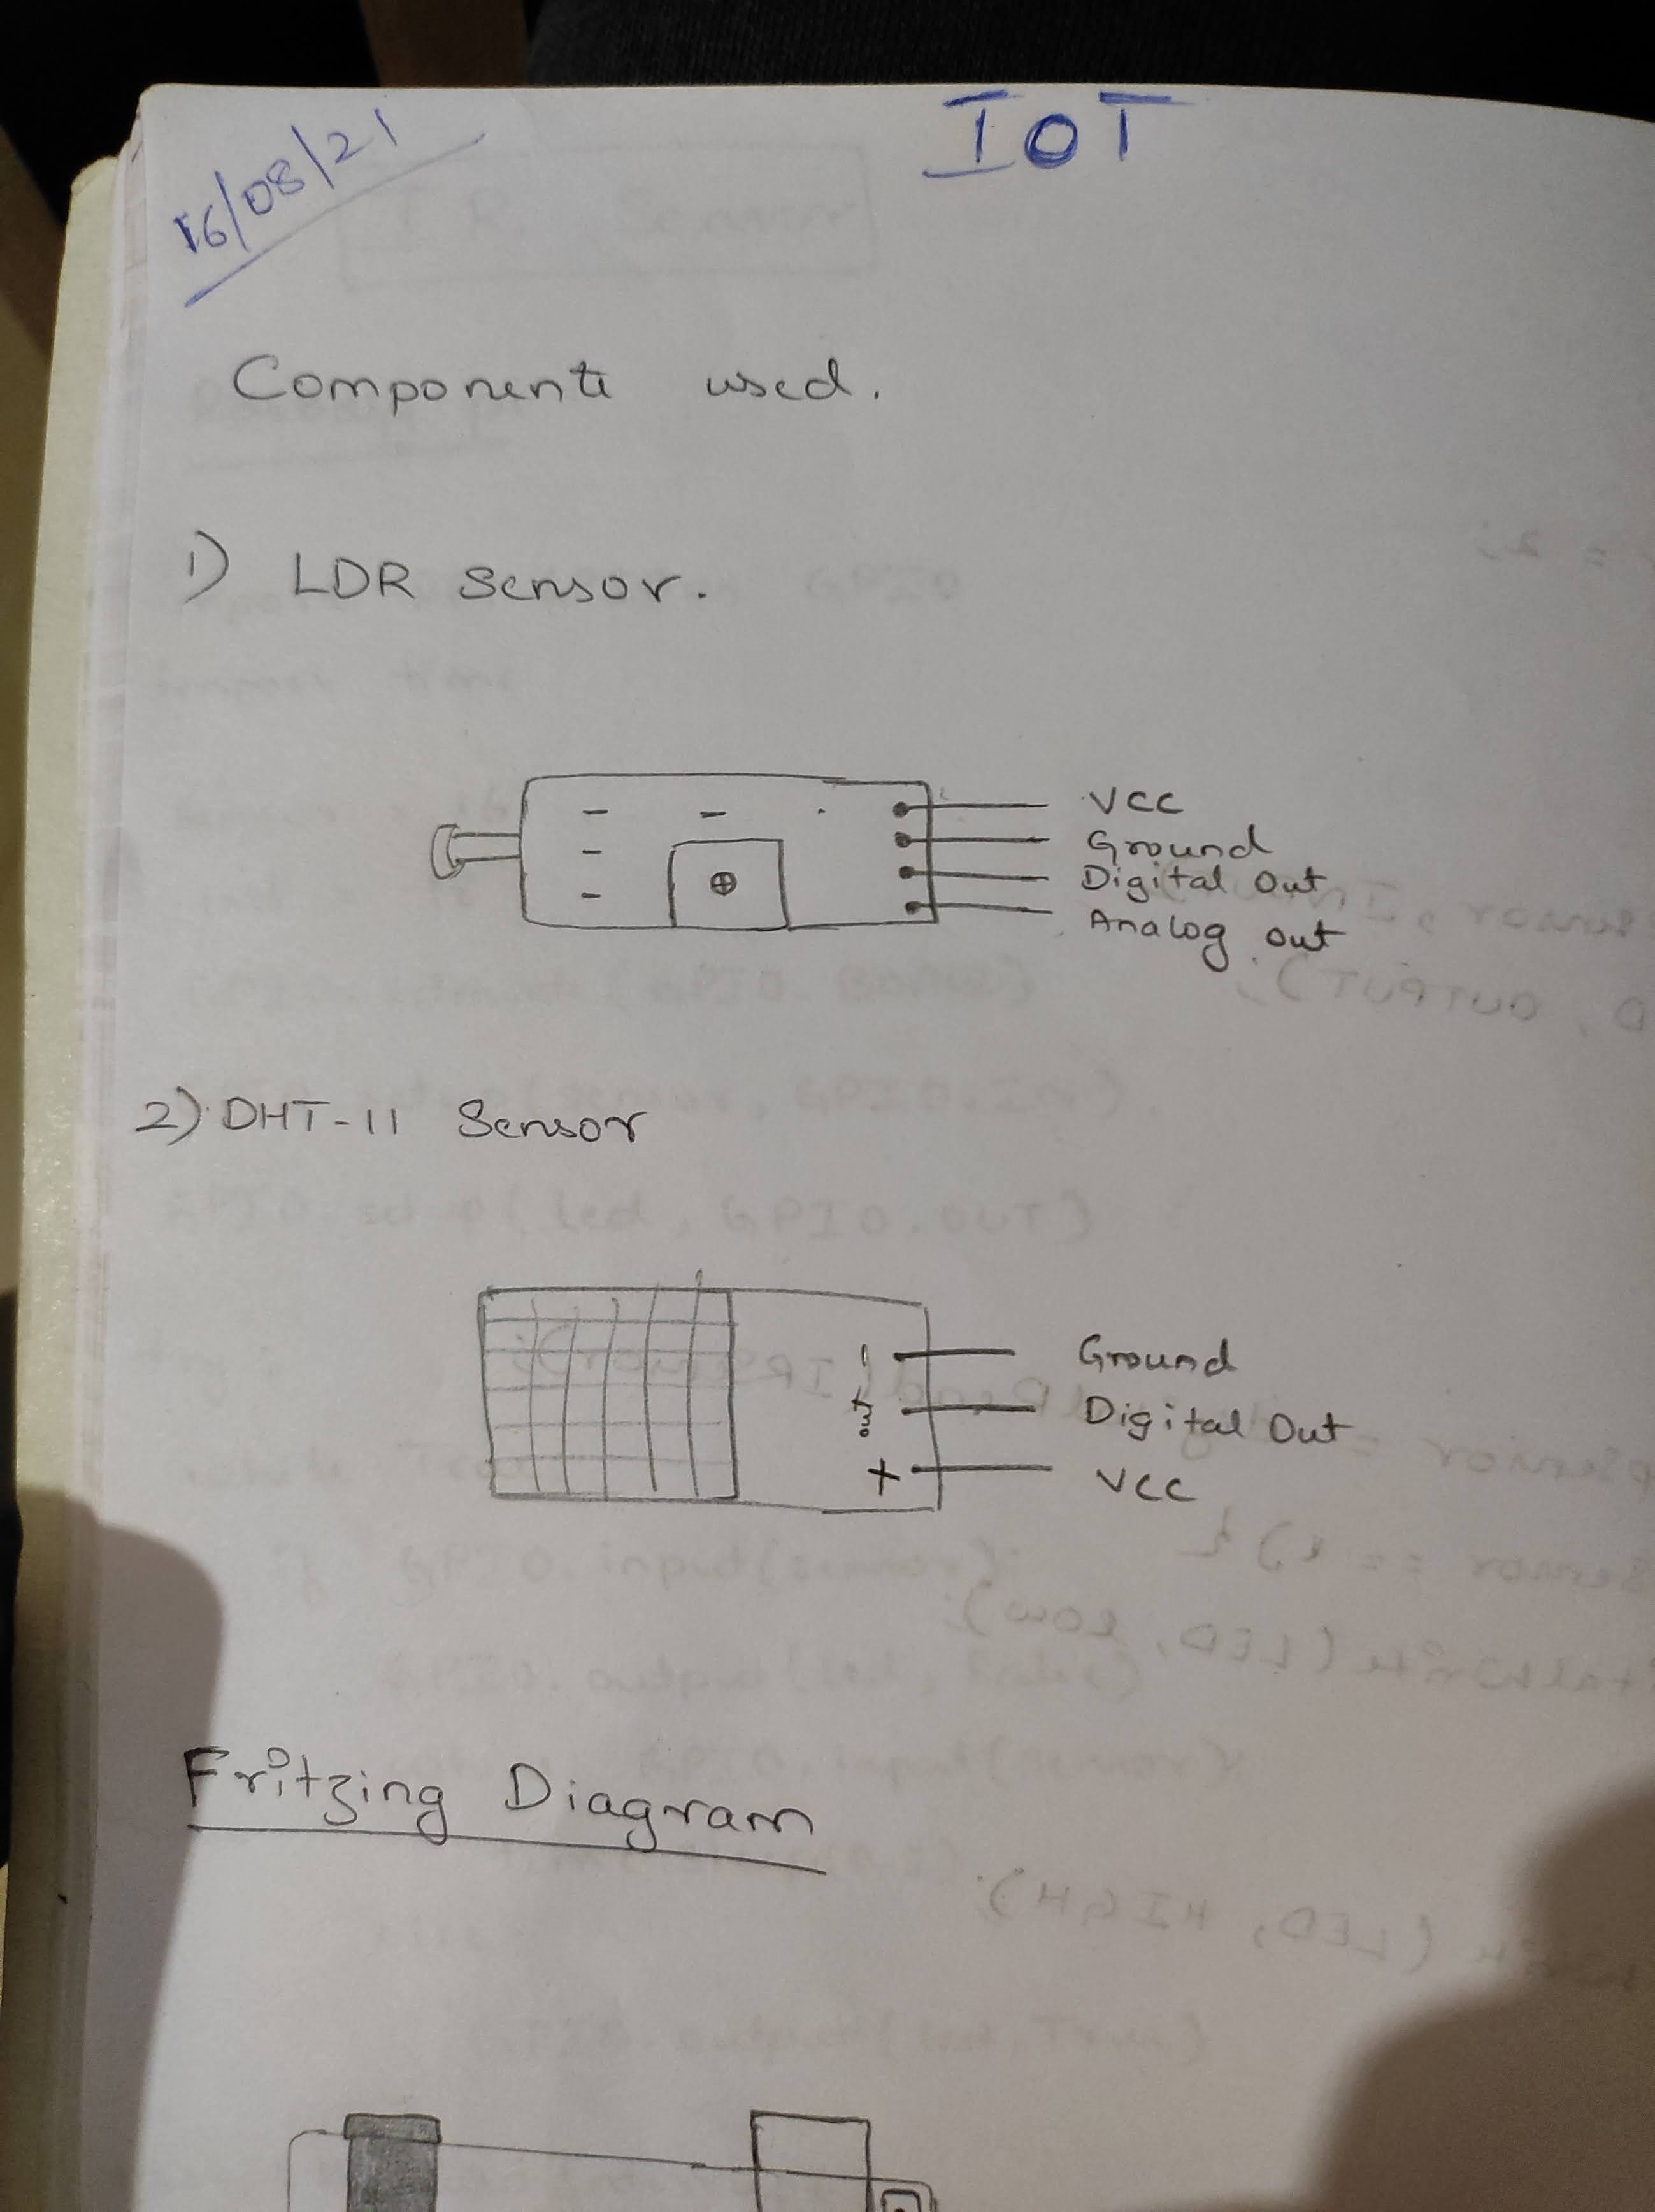 IOT
16/08/21
Components used.
1) LDR Sensor.
VCC
Ground
Digital Out
Analog out
2) DHT-11 Sensor
- Ground
out Digital Out
+ VCC
Fritzing Diagram